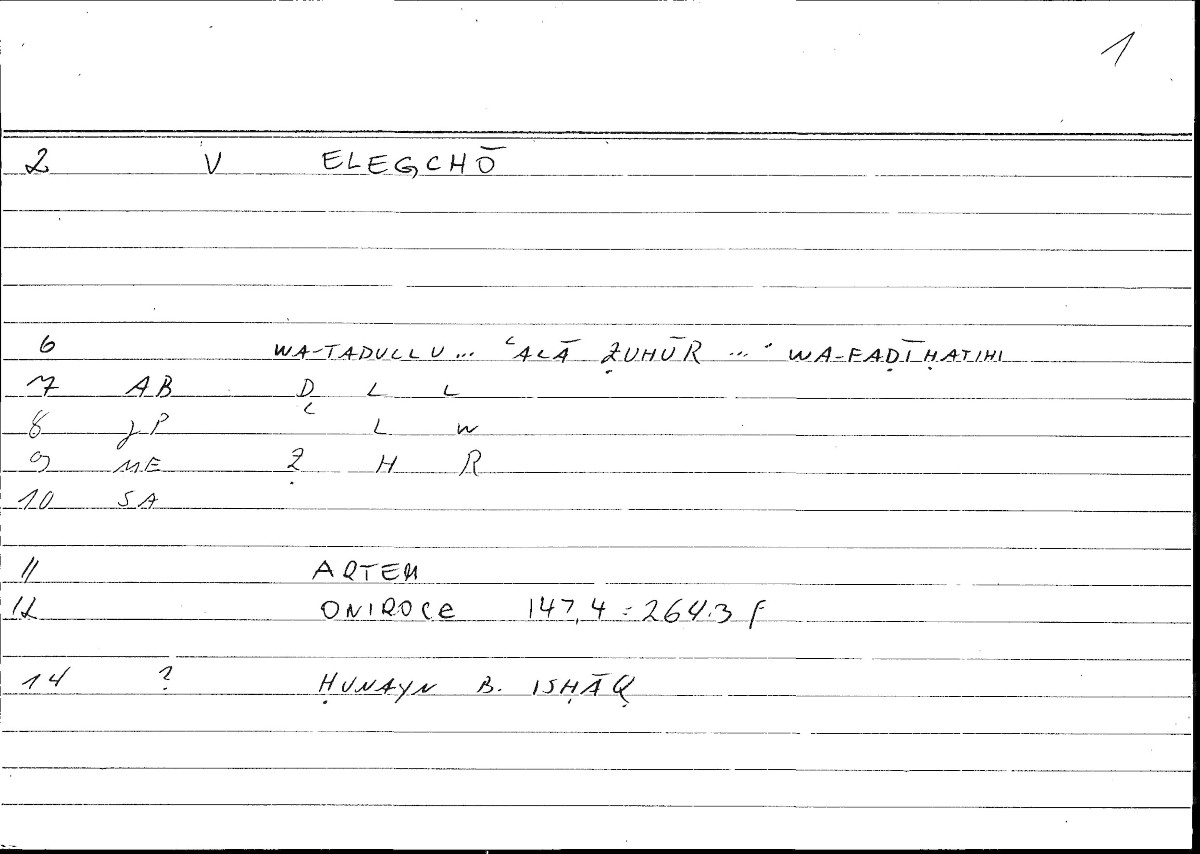 1
2 V ELEGCHŌ
6 WA-TADULLU... ʿALĀ ẒUHŪR ... WA-FAḌĪḤATIHI
7 AB D L L
8 JP ʿ L W
9 ME Ẓ H R
10 SA
11 ARTEM
12 ONIROCE 147,4 = 264.3 f
14 ? ḤUNAYN B. ISḤĀQ